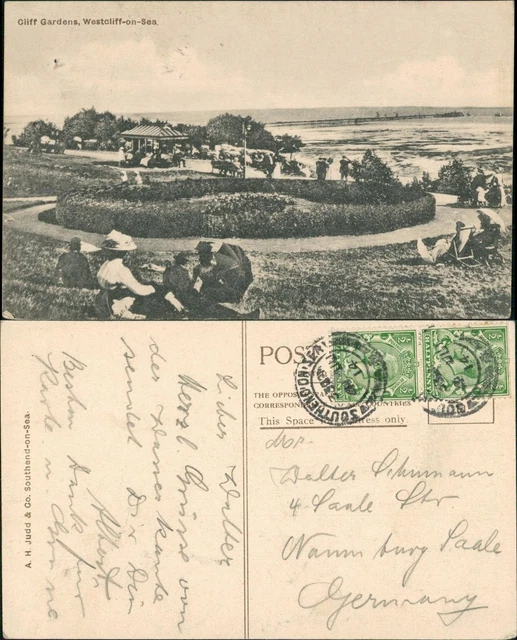 Cliff Gardens, Westcliff-on-Sea.
A. H. Judd & Co. Southend-on-Sea.
Lieber Walter
Herzl. Grüsse von
der
sendet Dir Dein
Albert
Besten Dank für
Karte u.
POST
THE
CORRESPONDENCE
This Space only.
SOUTHEND-ON-SEA
Walter Schumann
4 Saale Str
Naumburg Saale
Germany